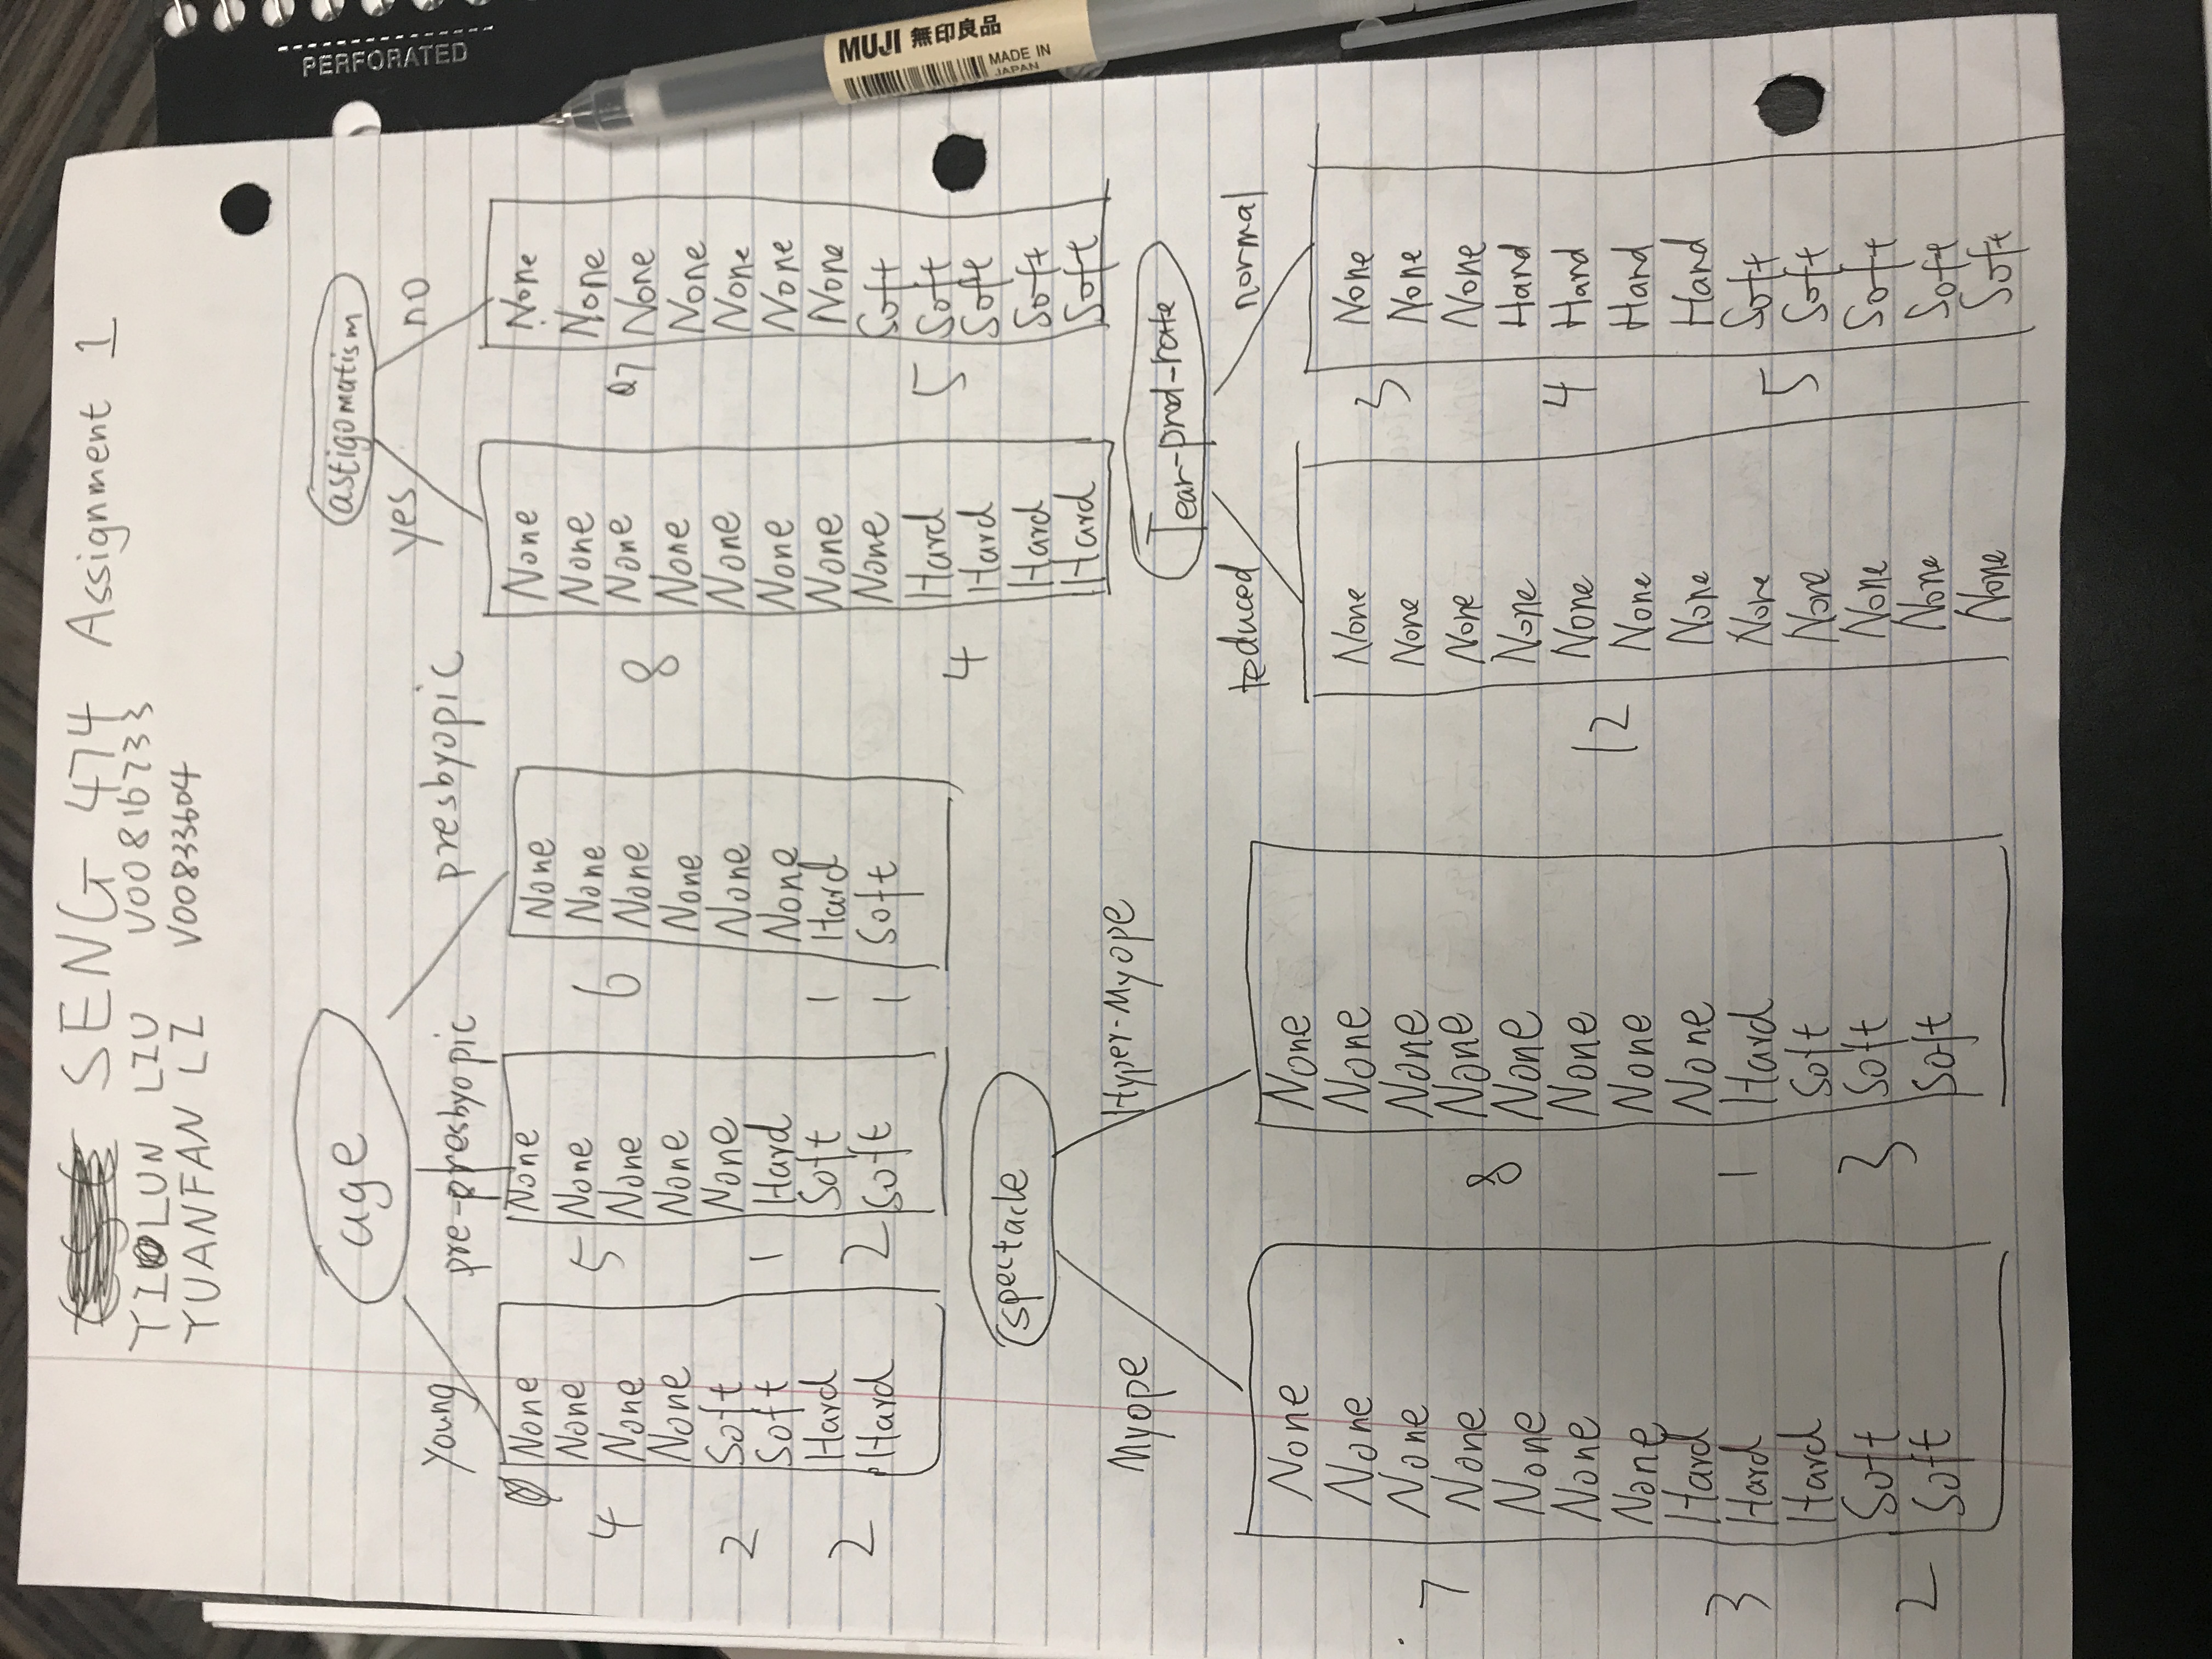 SENG 474 Assignment 1
YIOLUN LIU V00816733
YUANFAN LI V00833604
age
young
pre-presbyopic
presbyopic
None
None
4
None
None
2
Soft
Soft
Hard
2
Hard
None
5
None
None
None
None
1
Hard
Soft
2
Soft
None
None
6
None
None
None
None
1
Hard
1
Soft
astigomatism
yes
no
None
None
8
None
None
None
None
None
None
Hard
4
Hard
Hard
Hard
None
None
7
None
None
None
None
None
Soft
5
Soft
Soft
Soft
Soft
spectacle
Myope
Hyper-Myope
None
None
None
7
None
None
None
None
Hard
3
Hard
Hard
Soft
2
Soft
None
None
None
None
8
None
None
None
None
1
Hard
Soft
3
Soft
Soft
Tear-prod-rate
teduced
normal
None
None
None
None
12
None
None
None
None
None
None
None
None
3
None
None
None
Hard
4
Hard
Hard
Hard
Soft
5
Soft
Soft
Soft
Soft
PERFORATED
MUJI 無印良品
MADE IN
JAPAN